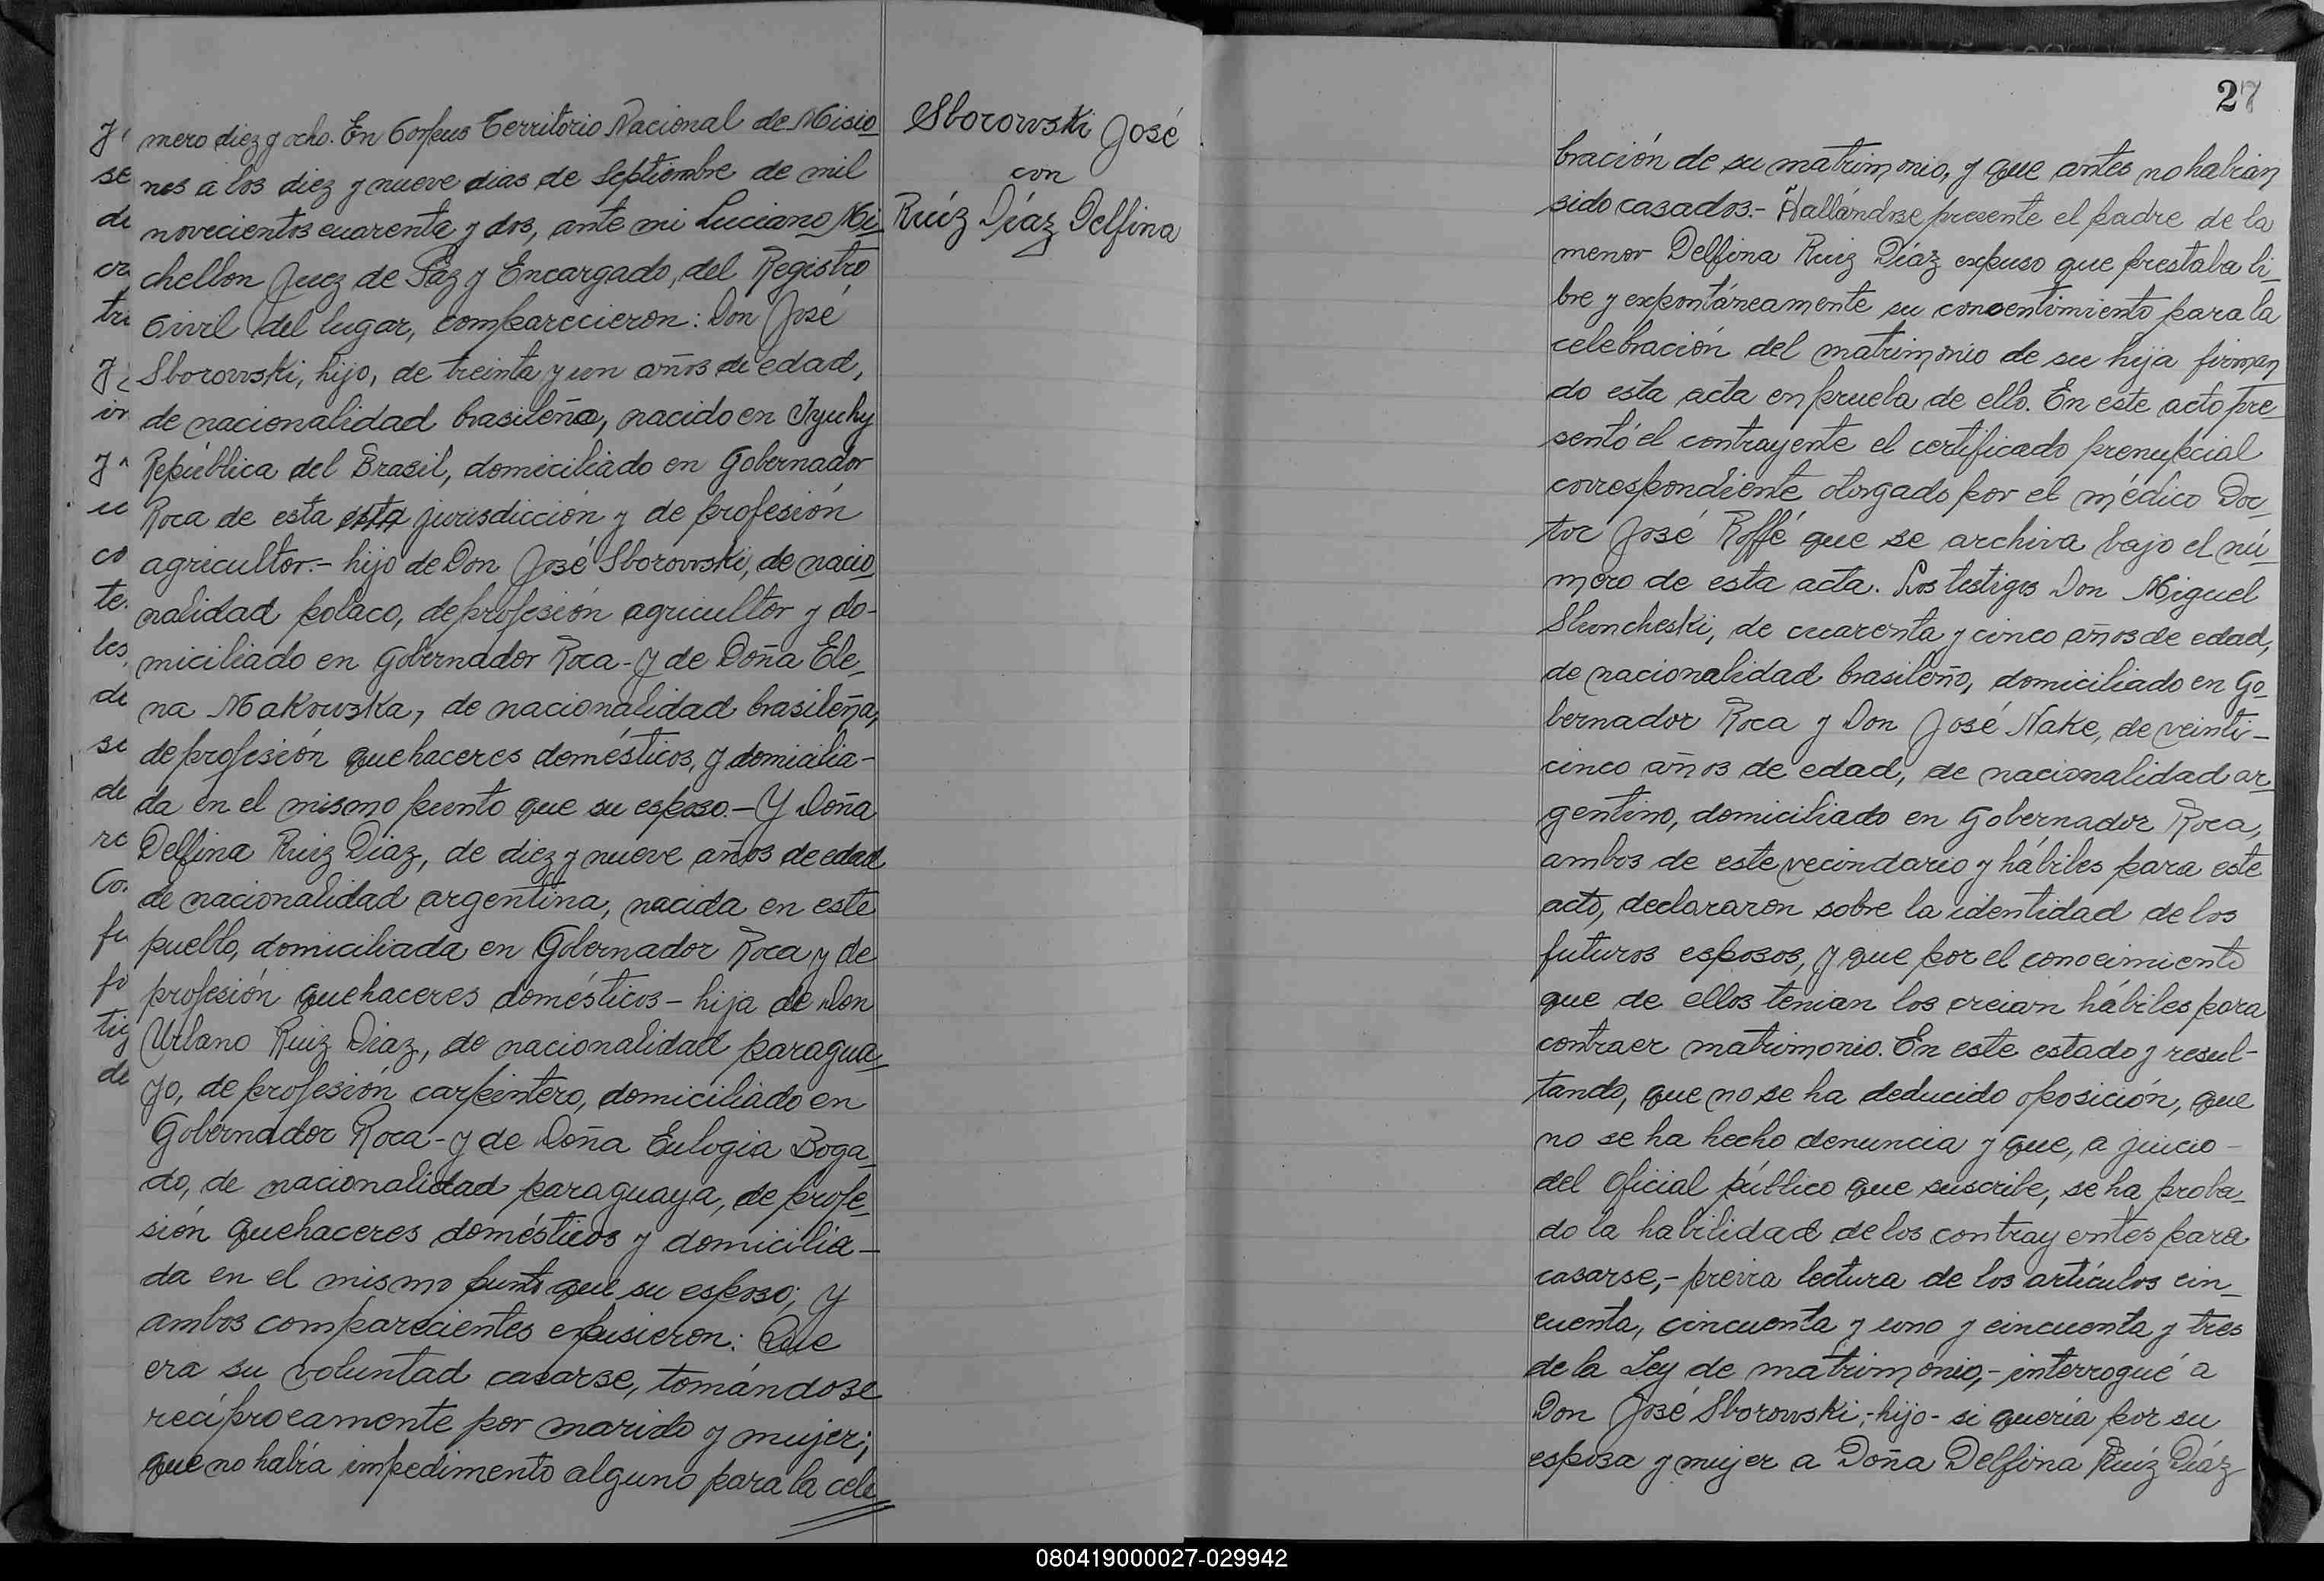 mero diez y ocho. En Corpus Territorio Nacional de Misio
nes a los diez y nueve dias de Septiembre de mil
novecientos cuarenta y dos, ante mi Luciano Mi
chellon Juez de Paz y Encargado, del Registro
Civil del lugar, comparecieron: Don José
Sborowski, hijo, de treinta y un años de edad,
de nacionalidad brasileña, nacido en Yyuhy
República del Brasil, domiciliado en Gobernador
Roca de esta esta jurisdicción y de profesión
agricultor.- hijo de Don José Sborowski, de nacio
nalidad polaco, de profesión agricultor y do-
miciliado en Gobernador Roca - y de Doña Ele
na Makowska, de nacionalidad brasileña,
de profesión quehaceres domésticos, y domicilia-
da en el mismo punto que su esposo.- Y Doña
Delfina Ruiz Diaz, de diez y nueve años de edad
de nacionalidad argentina, nacida en este
pueblo, domiciliada en Gobernador Roca y de
profesión quehaceres domésticos - hija de Don
Urbano Ruiz Diaz, de nacionalidad paragua
yo, de profesión carpintero, domiciliado en
Gobernador Roca - y de Doña Eulogia Boga
do, de nacionalidad paraguaya, de profe
sión quehaceres domésticos y domicilia-
da en el mismo punto que su esposo; Y
ambos comparecientes expusieron: Que
era su voluntad casarse, tomándose
recíprocamente por marido y mujer;
que no había impedimento alguno para la cele
Sborowski José
con
Ruíz Díaz Delfina
27
bración de su matrimonio, y que antes no habian
sido casados.- Hallándose presente el padre de la
menor Delfina Ruiz Díaz expuso que prestaba li
bre y expontáneamente su consentimiento para la
celebración del matrimonio de su hija firman
do esta acta en prueba de ello. En este acto pre
sentó el contrayente el certificado prenupcial
correspondiente otorgado por el médico Doc
tor José Roffé que se archiva bajo el nú
mero de esta acta. Los testigos Don Miguel
Sluncheski, de cuarenta y cinco años de edad,
de nacionalidad brasileño, domiciliado en Go
bernador Roca y Don José Nake, de veinti-
cinco años de edad, de nacionalidad ar
gentino, domiciliado en Gobernador Roca,
ambos de este vecindario y hábiles para este
acto, declararon sobre la identidad de los
futuros esposos, y que por el conocimiento
que de ellos tenian los creian hábiles para
contraer matrimonio. En este estado y resul-
tando, que no se ha deducido oposición, que
no se ha hecho denuncia y que, a juicio -
del Oficial público que suscribe, se ha proba
do la habilidad de los contrayentes para
casarse,- previa lectura de los artículos cin
cuenta, cincuenta y uno y cincuenta y tres
de la Ley de matrimonio,- interrogué a
Don José Sborowski,- hijo - si quería por su
esposa y mujer a Doña Delfina Ruíz Díaz
080419000027-029942